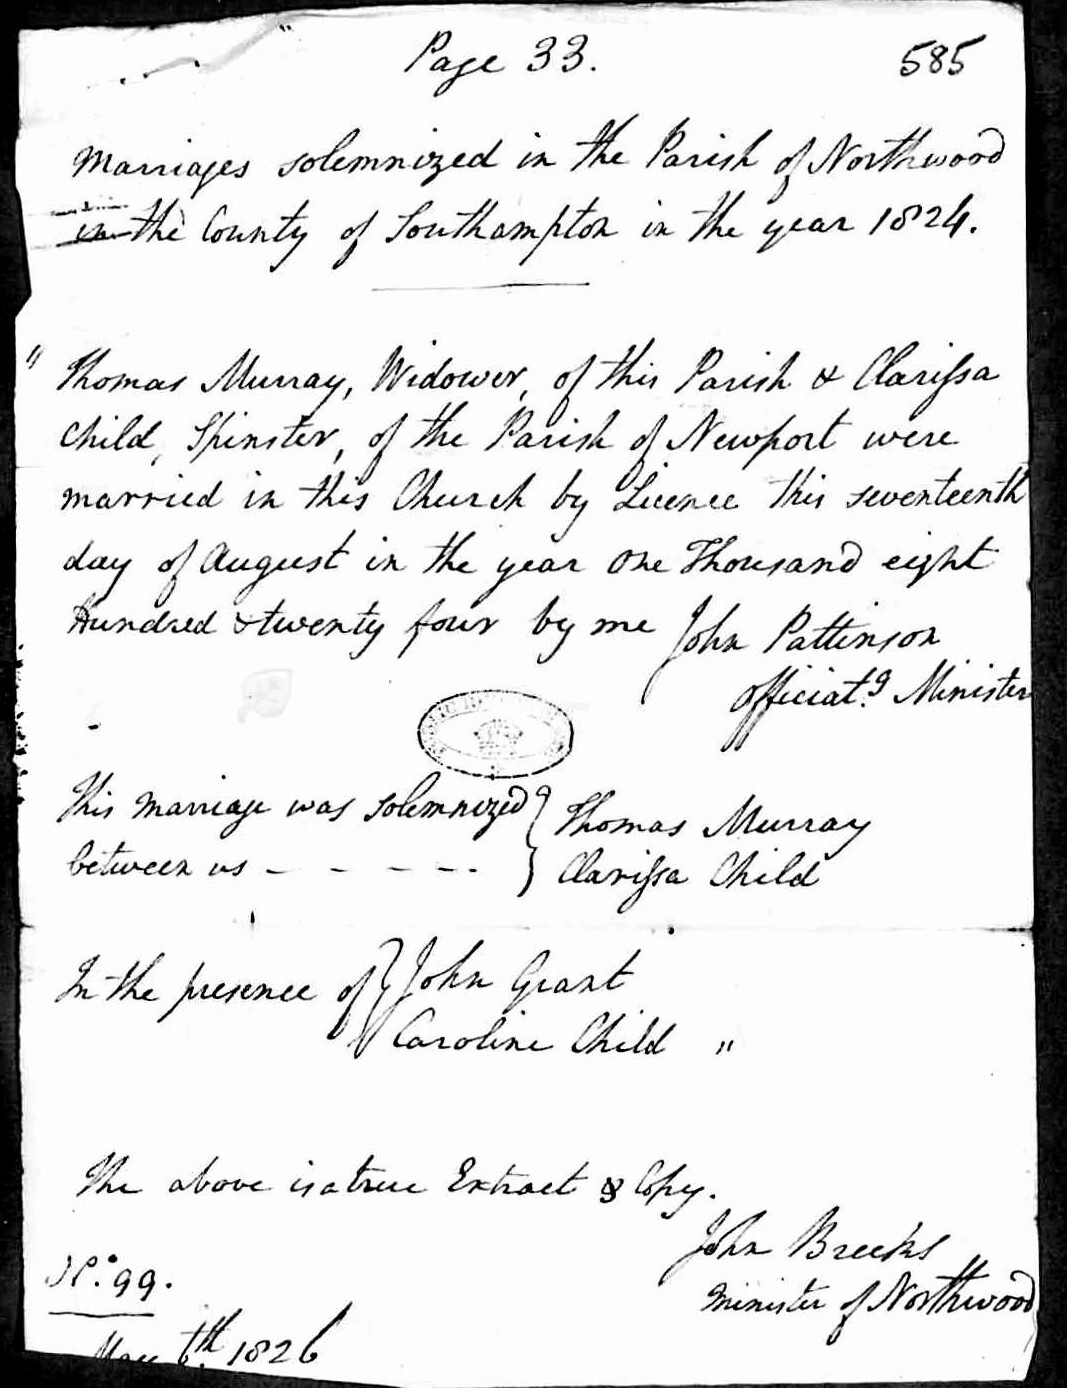 Page 33.
585
Marriages solemnized in the Parish of Northwood
in the County of Southampton in the year 1824.
" Thomas Murray, Widower, of this Parish & Clarifsa
Child, Spinster, of the Parish of Newport were
married in this Church by Licence this seventeenth
day of August in the year One Thousand eight
Hundred & twenty four by me John Pattinson
officiatg. Minister
This Marriage was solemnized } Thomas Murray
between us - - - - - - } Clarifsa Child
In the presence of } John Grant
Caroline Child "
The above is a true Extract & Copy.
John Breeks
Minister of Northwood
No. 99.
May 6th. 1826